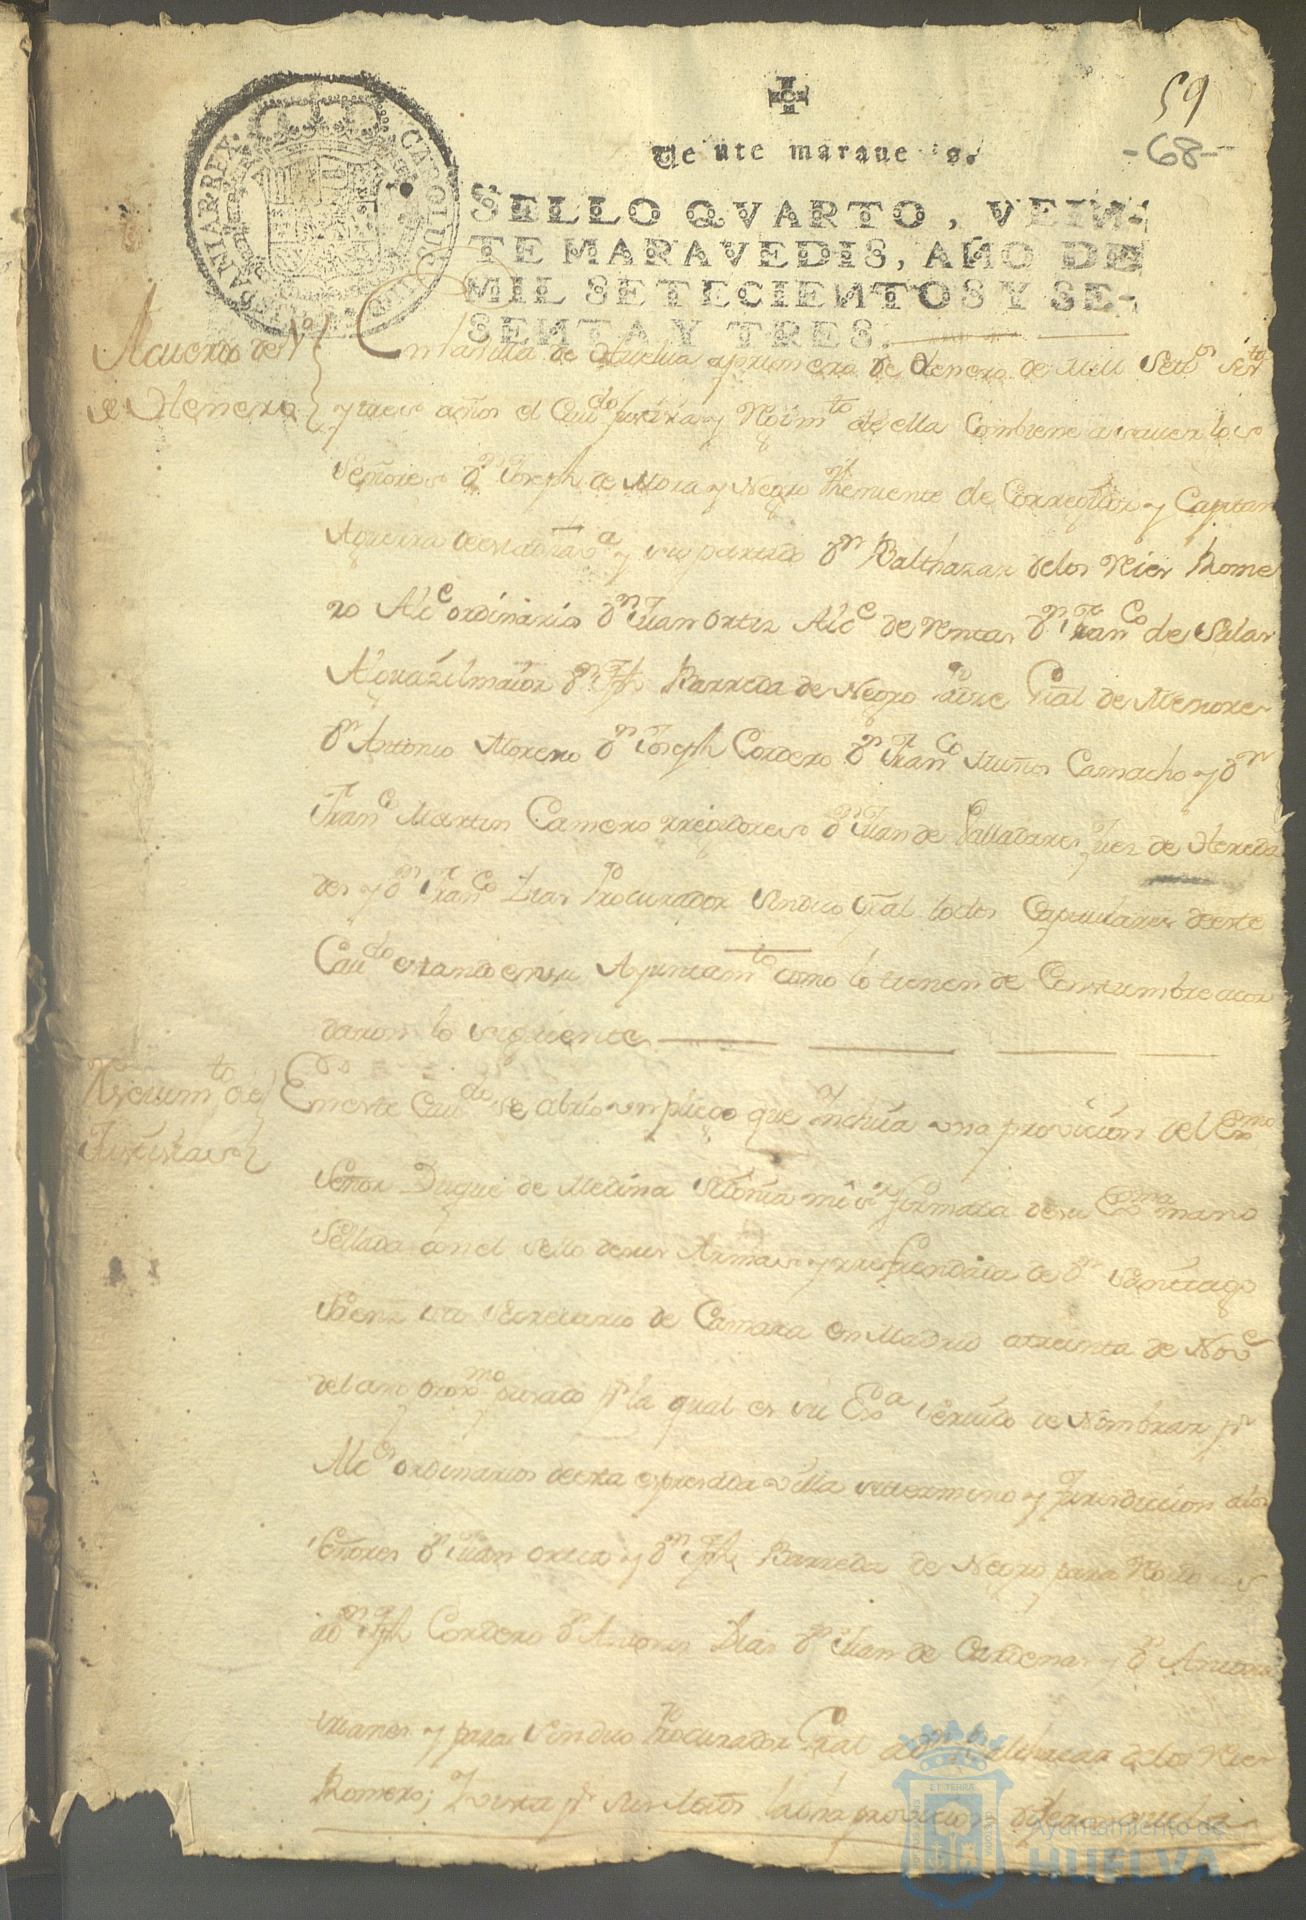 59
-68-
Veinte maravedis.
SELLO QVARTO, VEIN-
TE MARAVEDIS, AÑO DE
MIL SETECIENTOS Y SE-
SENTA Y TRES.
CAROLUS III
HISPANIAR. REX.
Acuerdo de 1º
de Henero
En la villa de Huelva a primero de Henero de mill Setos Sesta
y tres años el Cavdo Justizia y Rximto de ella Combiene a saver los
Señores Dn Joseph de Mora y Negro Theniente de Corregidor y Capitan
Aguerra de esta dha va y su partido Dn Balthazar de los Ries Rome
ro Alce ordinario Dn Juan Ortiz Alce de Ventas Dn Franco de Salas
Alguazil maior Dn Jph Barreda de Negro Padre Gral de Menores
Dn Antonio Moreno Dn Joseph Cordero Dn Franco Muños Camacho y Dn
Franco Martin Camero rrexidores Dn Juan de Valladares Juez de Hereda
des y Dn Franco Dias Procurador Sindico Gral todos Capitulares de este
Cavdo estando en su Ayuntamto como lo tienen de Constumbre acor
daron lo siguiente
Resevimto de
Justizias
En este Cavdo se abrio un pliego que Incluia una provicion del Exmo
Señor Duque de Medina Sidonia mi Sr firmada de su Exma mano
Sellada con el sello de sus Armas y rrefrendada de Dn Santiago
Saenz su Secretario de Camara en Madrid a treinta de Nove
del año proxmo pasado pr la qual es su Exa servido de Nombrar pr
Alces ordinarios de esta espresada villa su termino y Jurisdiccion a los
Señores Dn Juan Ortiz y Dn Jph Barreda de Negro para
a Dn Jph Cordero Dn Antonio Dias Dn Juan de Cardenas y Dn Antonio
y para Sindico Procurador Gral a Dn Balthazar de los Ries
Romero; Y vista pr sus la dha provicion
ET TERRA
Ayuntamiento de
HUELVA